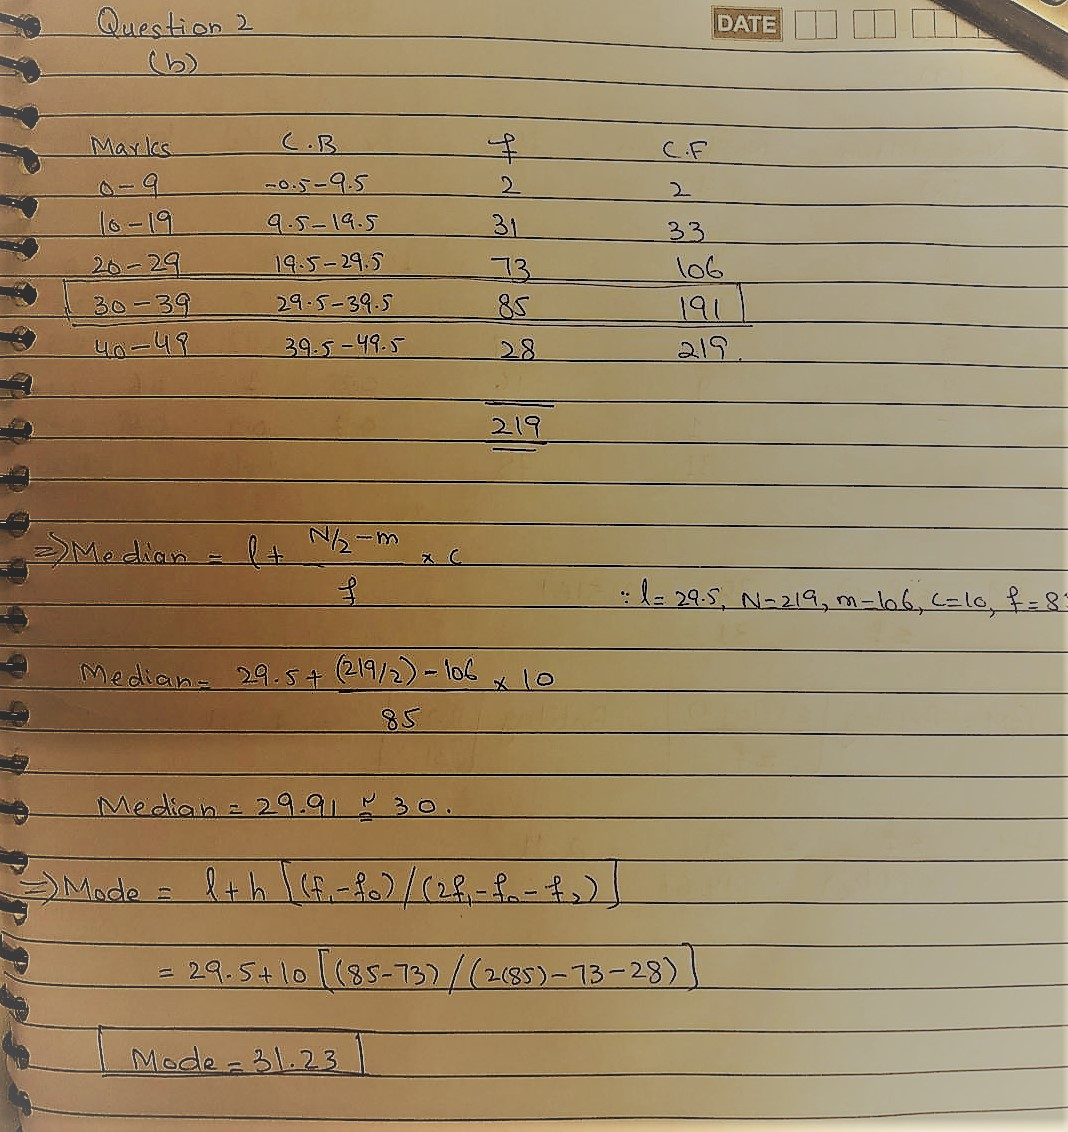 Question 2
DATE
(b)
Marks C.B f C.F
0-9 -0.5-9.5 2 2
10-19 9.5-19.5 31 33
20-29 19.5-29.5 73 106
30-39 29.5-39.5 85 191
40-49 39.5-49.5 28 219.
219
=> Median = l + N/2 - m × c
f
∵ l = 29.5, N=219, m=106, C=10, f=8
Median = 29.5 + (219/2) - 106 × 10
85
Median = 29.91 ≅ 30.
=> Mode = l+h [(f₁-f₀)/(2f₁-f₀-f₂)]
= 29.5+10 [(85-73)/(2(85)-73-28)]
Mode = 31.23